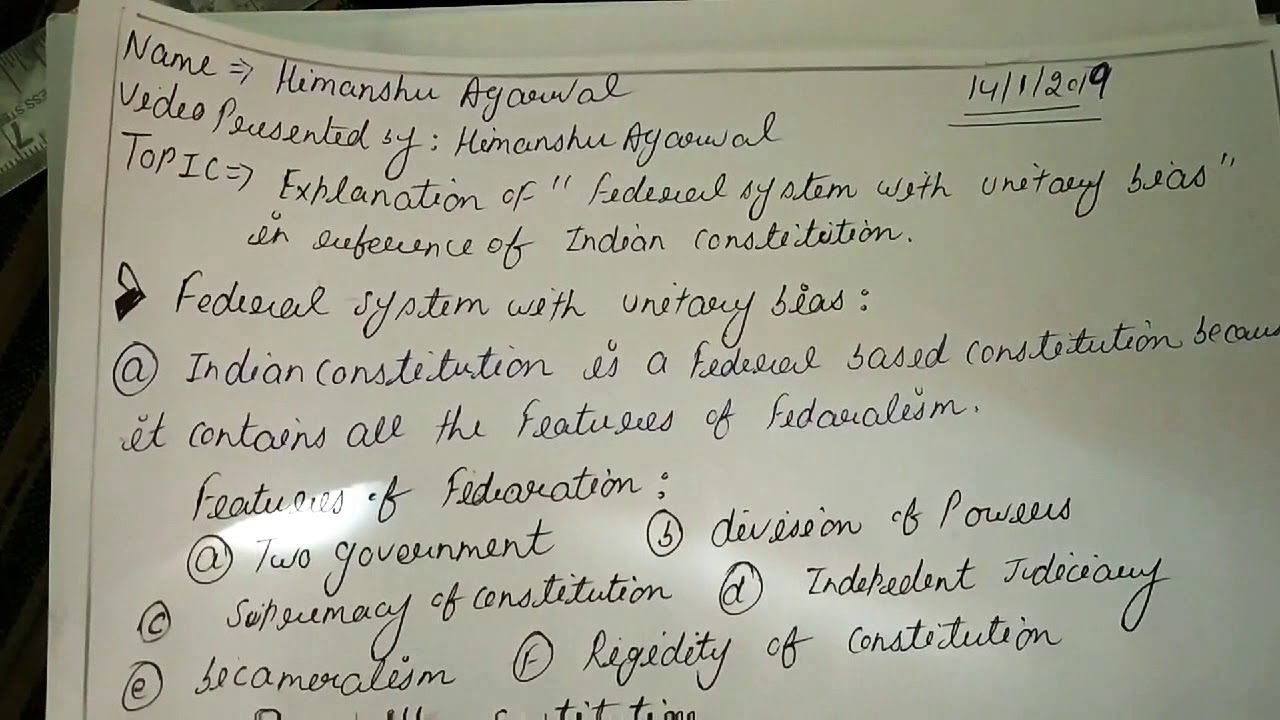 Name ⇒ Himanshu Agarwal
14/1/2019
Video Presented by : Himanshu Agarwal
TOPIC ⇒ Explanation of "Federal system with unitary bias"
in reference of Indian constitution.
Federal system with unitary bias :
(a) Indian constitution is a Federal based constitution becaus
it contains all the Features of Fedaralism.
Features of Fedaration :
(a) Two government (b) division of Powers
(c) Supremacy of constitution (d) Indepedent Judiciary
(e) becameralism (f) Rigidity of constitution